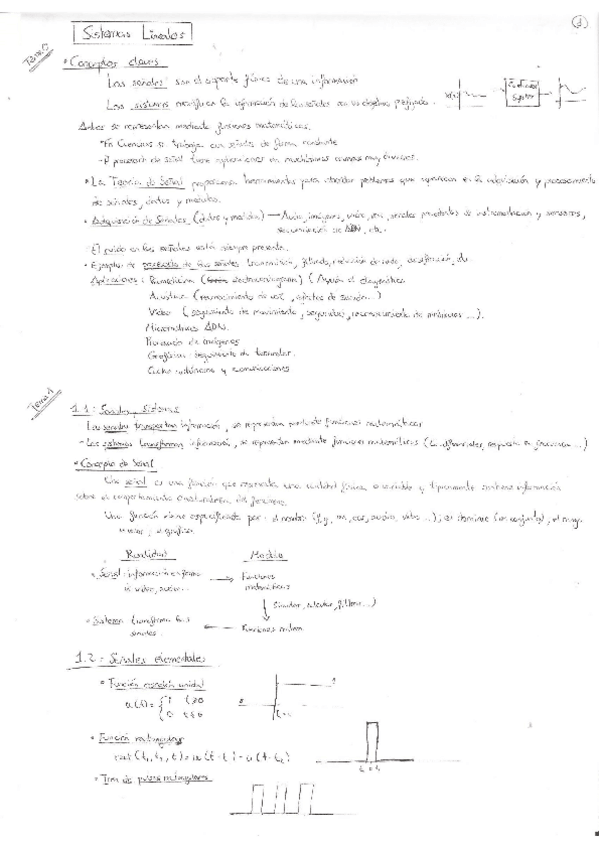 1
Sistemas Lineales
Tema 0
• Conceptos claves
Las señales son el soporte físico de una información
Los sistemas modifican la información de las señales con un objetivo prefijado.
Ambos se representan mediante funciones matemáticas.
- En Ciencias se trabaja con señales de forma constante
- El procesado de señal tiene aplicaciones en muchísimas muy diversas.
• La Teoría de Señal proporciona herramientas para abordar problemas que aparecen en la adquisición y procesamiento
de señales, datos y medidas.
• Adquisición de Señales (datos y medidas) → Audio, imágenes, video, señales procedentes de instrumentación y sensores,
secuenciación de ADN, etc.
El ruido en las señales está siempre presente.
• Ejemplos de procesado de las señales: transmisión, filtrado, reducción de ruido, etc
Aplicaciones: Biomedicina (electrocardiograma) (Ayuda al diagnóstico
Acústica (reconocimiento de voz, efectos de sonido...)
Video (seguimiento de movimiento, seguridad, reconocimiento de matrículas ...).
ADN.
de imágenes
y comunicaciones
Tema 1
1.1: Señales y Sistemas
Las señales transportan información, se representan mediante funciones matemáticas
- Los sistemas transforman información, se representan mediante funciones matemáticas (respuesta en frecuencia ...)
• Concepto de Señal
Una señal es una función que representa una cantidad física o variable y típicamente contiene información
sobre el comportamiento o naturaleza del fenómeno.
Una función viene especificada por: el nombre (audio, video ...); el dominio (un conjunto), el rango
; la gráfica
Realidad Modelo
• Señal: información en forma → Funciones
de video, audio... matemáticas
(Simular, calcular, filtrar...)
• Sistema (transforma las ← Funciones
señales
1.2: Señales elementales
• Función escalón unidad
u(t) = { 1 t≥0
0 t<0
• Función rectangular
rect (t₁, t₂, t) = u(t-t₁) - u(t-t₂)
• Tren de pulsos rectangulares